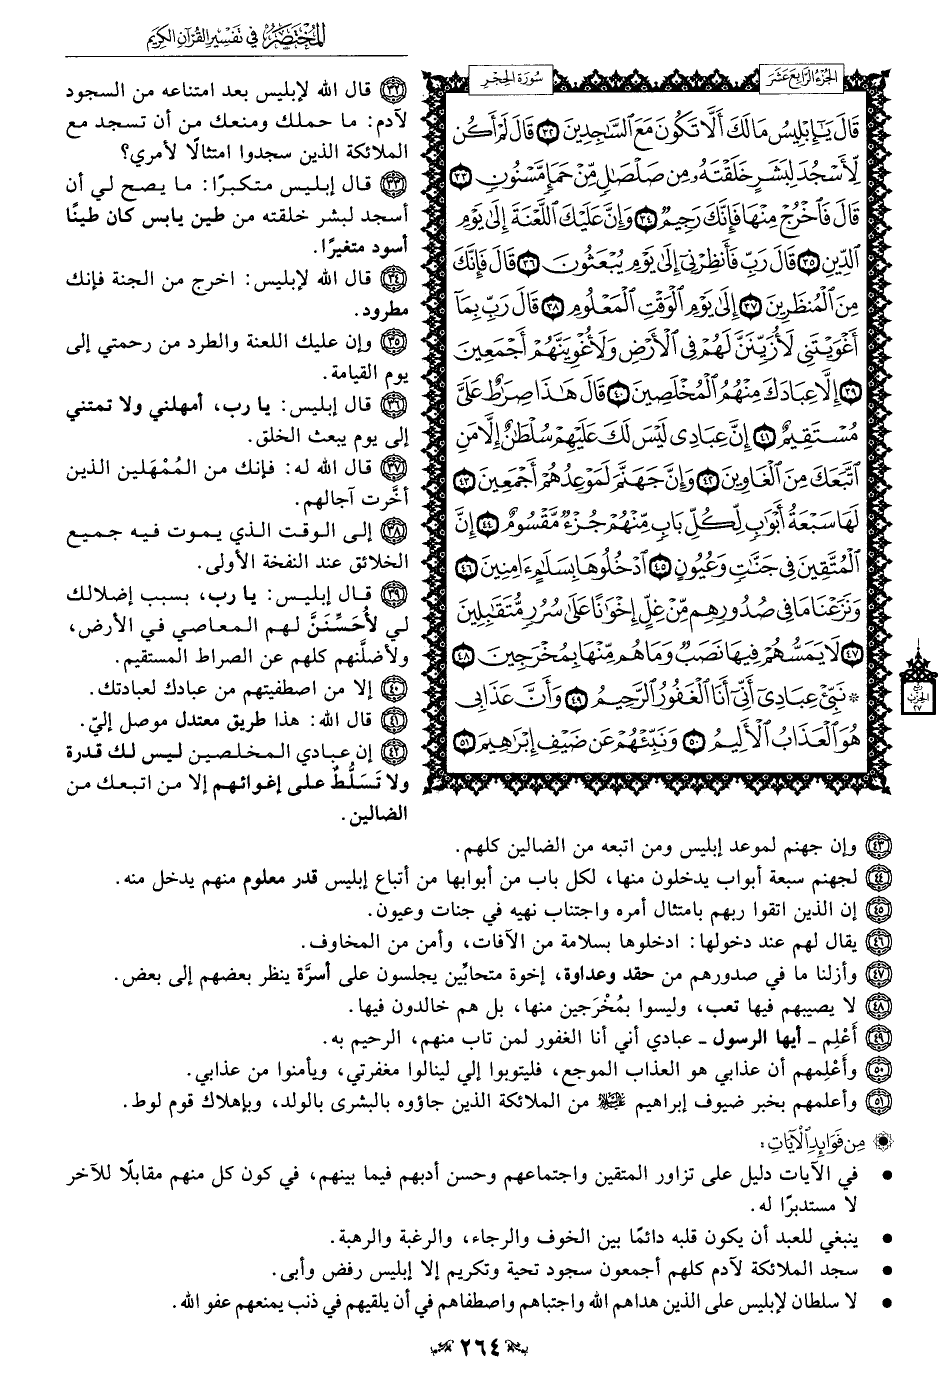 المختصر في تفسير القرآن الكريم
الجزء الرابع عشر
سورة الحجر
قَالَ يَٰٓإِبْلِيسُ مَا لَكَ أَلَّا تَكُونَ مَعَ ٱلسَّٰجِدِينَ ٣٢ قَالَ لَمْ أَكُن
لِّأَسْجُدَ لِبَشَرٍ خَلَقْتَهُۥ مِن صَلْصَٰلٍ مِّنْ حَمَإٍ مَّسْنُونٍ ٣٣
قَالَ فَٱخْرُجْ مِنْهَا فَإِنَّكَ رَجِيمٌ ٣٤ وَإِنَّ عَلَيْكَ ٱللَّعْنَةَ إِلَىٰ يَوْمِ
ٱلدِّينِ ٣٥ قَالَ رَبِّ فَأَنظِرْنِىٓ إِلَىٰ يَوْمِ يُبْعَثُونَ ٣٦ قَالَ فَإِنَّكَ
مِنَ ٱلْمُنظَرِينَ ٣٧ إِلَىٰ يَوْمِ ٱلْوَقْتِ ٱلْمَعْلُومِ ٣٨ قَالَ رَبِّ بِمَآ
أَغْوَيْتَنِى لَأُزَيِّنَنَّ لَهُمْ فِى ٱلْأَرْضِ وَلَأُغْوِيَنَّهُمْ أَجْمَعِينَ
٣٩ إِلَّا عِبَادَكَ مِنْهُمُ ٱلْمُخْلَصِينَ ٤٠ قَالَ هَٰذَا صِرَٰطٌ عَلَىَّ
مُسْتَقِيمٌ ٤١ إِنَّ عِبَادِى لَيْسَ لَكَ عَلَيْهِمْ سُلْطَٰنٌ إِلَّا مَنِ
ٱتَّبَعَكَ مِنَ ٱلْغَاوِينَ ٤٢ وَإِنَّ جَهَنَّمَ لَمَوْعِدُهُمْ أَجْمَعِينَ ٤٣
لَهَا سَبْعَةُ أَبْوَٰبٍ لِّكُلِّ بَابٍ مِّنْهُمْ جُزْءٌ مَّقْسُومٌ ٤٤ إِنَّ
ٱلْمُتَّقِينَ فِى جَنَّٰتٍ وَعُيُونٍ ٤٥ ٱدْخُلُوهَا بِسَلَٰمٍ ءَامِنِينَ ٤٦
وَنَزَعْنَا مَا فِى صُدُورِهِم مِّنْ غِلٍّ إِخْوَٰنًا عَلَىٰ سُرُرٍ مُّتَقَٰبِلِينَ
٤٧ لَا يَمَسُّهُمْ فِيهَا نَصَبٌ وَمَا هُم مِّنْهَا بِمُخْرَجِينَ ٤٨
* نَبِّئْ عِبَادِىٓ أَنِّىٓ أَنَا ٱلْغَفُورُ ٱلرَّحِيمُ ٤٩ وَأَنَّ عَذَابِى
هُوَ ٱلْعَذَابُ ٱلْأَلِيمُ ٥٠ وَنَبِّئْهُمْ عَن ضَيْفِ إِبْرَٰهِيمَ ٥١
ربع
الحزب
٢٧
٣٢ قال الله لإبليس بعد امتناعه من السجود
لآدم: ما حملك ومنعك من أن تسجد مع
الملائكة الذين سجدوا امتثالًا لأمري؟
٣٣ قال إبليس متكبرًا: ما يصح لي أن
أسجد لبشر خلقته من طين يابس كان طينًا
أسود متغيرًا.
٣٤ قال الله لإبليس: اخرج من الجنة فإنك
مطرود.
٣٥ وإن عليك اللعنة والطرد من رحمتي إلى
يوم القيامة.
٣٦ قال إبليس: يا رب، أمهلني ولا تمتني
إلى يوم يبعث الخلق.
٣٧ قال الله له: فإنك من المُمْهَلين الذين
أخَّرت آجالهم.
٣٨ إلى الوقت الذي يموت فيه جميع
الخلائق عند النفخة الأولى.
٣٩ قال إبليس: يا رب، بسبب إضلالك
لي لأُحَسِّنَنَّ لهم المعاصي في الأرض،
ولأضلَّنهم كلهم عن الصراط المستقيم.
٤٠ إلا من اصطفيتهم من عبادك لعبادتك.
٤١ قال الله: هذا طريق معتدل موصل إليّ.
٤٢ إن عبادي المخلصين ليس لك قدرة
ولا تَسَلُّطٌ على إغوائهم إلا من اتبعك من
الضالين.
٤٣ وإن جهنم لموعد إبليس ومن اتبعه من الضالين كلهم.
٤٤ لجهنم سبعة أبواب يدخلون منها، لكل باب من أبوابها من أتباع إبليس قدر معلوم منهم يدخل منه.
٤٥ إن الذين اتقوا ربهم بامتثال أمره واجتناب نهيه في جنات وعيون.
٤٦ يقال لهم عند دخولها: ادخلوها بسلامة من الآفات، وأمن من المخاوف.
٤٧ وأزلنا ما في صدورهم من حقد وعداوة، إخوة متحابِّين يجلسون على أسرَّة ينظر بعضهم إلى بعض.
٤٨ لا يصيبهم فيها تعب، وليسوا بمُخْرَجين منها، بل هم خالدون فيها.
٤٩ أَعْلِم ـ أيها الرسول ـ عبادي أني أنا الغفور لمن تاب منهم، الرحيم به.
٥٠ وأَعْلِمهم أن عذابي هو العذاب الموجع، فليتوبوا إلي لينالوا مغفرتي، ويأمنوا من عذابي.
٥١ وأعلمهم بخبر ضيوف إبراهيم من الملائكة الذين جاؤوه بالبشرى بالولد، وبإهلاك قوم لوط.
من فوائد الآيات:
• في الآيات دليل على تزاور المتقين واجتماعهم وحسن أدبهم فيما بينهم، في كون كل منهم مقابلًا للآخر
لا مستدبرًا له.
• ينبغي للعبد أن يكون قلبه دائمًا بين الخوف والرجاء، والرغبة والرهبة.
• سجد الملائكة لآدم كلهم أجمعون سجود تحية وتكريم إلا إبليس رفض وأبى.
• لا سلطان لإبليس على الذين هداهم الله واجتباهم واصطفاهم في أن يلقيهم في ذنب يمنعهم عفو الله.
٢٦٤